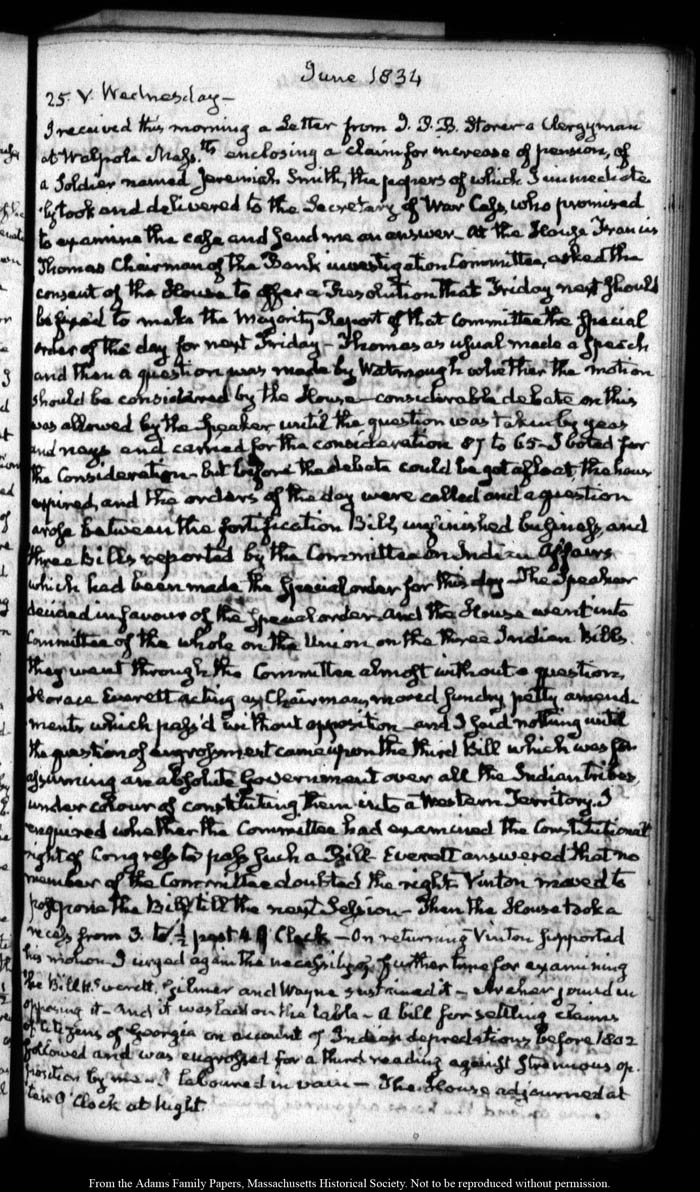 June 1834
25. V. Wednesday—
I received this morning a Letter from J. P. B. Storer a Clergyman
at Walpole Mass.ts enclosing a claim for increase of pension, of
a Soldier named Jeremiah Smith, the papers of which I immediate-
ly took and delivered to the Secretary of War Cass, who promised
to examine the case and send me an answer— At the House Francis
Thomas Chairman of the Bank investigation Committee, asked the
consent of the House to offer a Resolution that Friday next should
be fixed to make the Majority Report of that Committee the special
order of the day for next Friday— Thomas as usual made a speech
and then a question was made by Watmough whether the motion
should be considered by the House— considerable debate on this
was allowed by the Speaker until the question was taken by yeas
and nays and carried for the consideration 87 to 65— I voted for
the Consideration— but before the debate could be got afloat, the hour
expired, and the orders of the day were called and a question
arose between the fortification Bill, unfinished business, and
three Bills reported by the Committee on Indian Affairs
which had been made the Special order for this day— The Speaker
decided in favour of the special order and the House went into
Committee of the whole on the Union, on the three Indian Bills.
they went through the Committee almost without a question,
Horace Everett acting as Chairman, moved sundry petty amend-
ments which pass'd without opposition— and I said nothing until
the question of engrossment came upon the third Bill which was for
assuming an absolute Government over all the Indian tribes,
under colour of constituting them into a Western Territory. I
enquired whether the Committee had examined the Constitutional
right of Congress to pass such a Bill— Everett answered that no
member of the Committee doubted the right— Vinton moved to
postpone the Bill till the next Session— Then the House took a
recess from 3. to ½ past 4 O'Clock— On returning Vinton supported
his motion— I urged again the necessity of further time for examining
the Bill. H. Everett, Gilmer and Wayne sustained it— Archer joined in
opposing it— and it was laid on the table— a bill for settling claims
of Citizens of Georgia on account of Indian depredations before 1802
followed and was engrossed for a third reading against strenuous op-
position by me— I laboured in vain— The House adjourned at
ten O'Clock at Night.
From the Adams Family Papers, Massachusetts Historical Society. Not to be reproduced without permission.